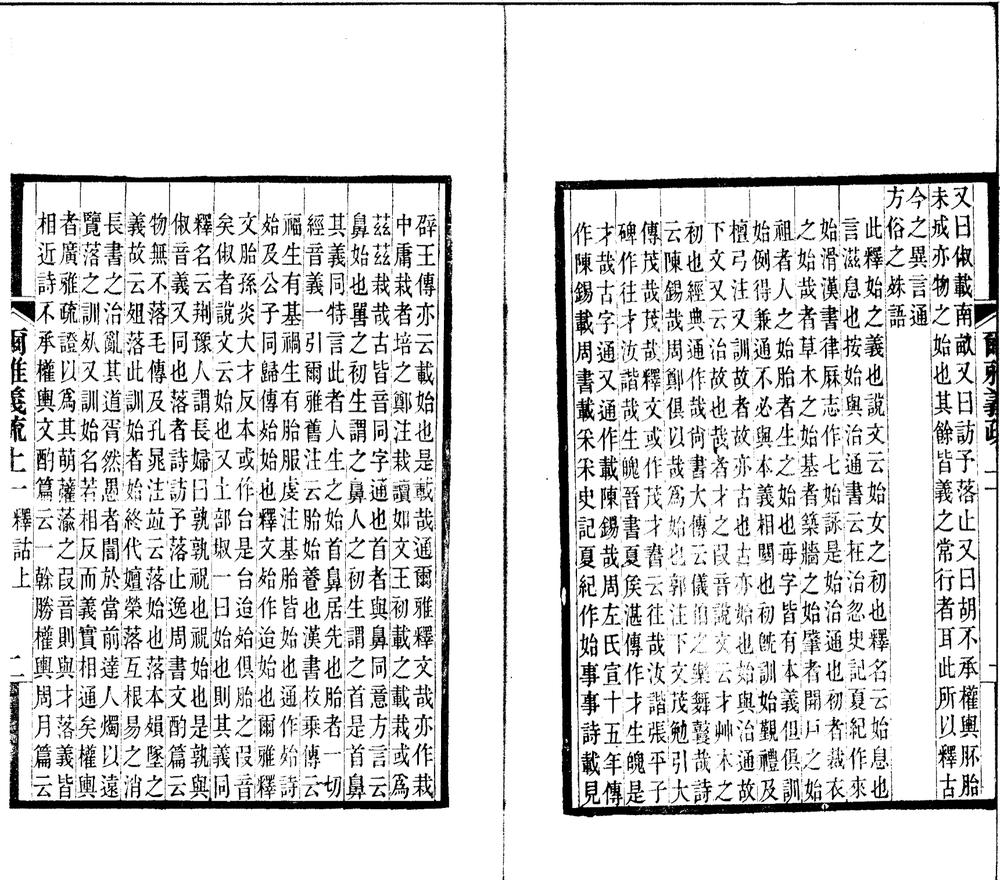 又曰俶載南畝又曰訪予落止又曰胡不承權輿胚胎
未成亦物之始也其餘皆義之常行者耳此所以釋古
今之異言通
方俗之殊語
此釋始之義也說文云始女之初也釋名云始息也
言滋息也按始與治通書云在治忽史記夏紀作來
始滑漢書律厤志作七始詠是始治通也初者裁衣
之始哉者草木之始基者築牆之始肇者開戶之始
祖者人之始胎者生之始也每字皆有本義但俱訓
始例得兼通不必與本義相關也初旣訓始覲禮及
檀弓注又訓故故者故亦古也古亦始也始與治通故
下文又云治故也哉者才之叚音說文云才艸木之
初也經典通作哉尙書大傳云儀伯之樂舞鼚哉詩
云陳錫哉周鄭俱以哉爲始也郭注下文茂勉引大
傳茂哉茂哉釋文或作茂才書云往哉汝諧張平子
碑作往才汝諧哉生魄晉書夏侯湛傳作才生魄是
才哉古字通又通作載陳錫哉周左氏宣十五年傳
作陳錫載周書載采采史記夏紀作始事事詩載見
辟王傳亦云載始也是載哉通爾雅釋文哉亦作栽
中庸栽者培之鄭注栽讀如文王初載之載栽或爲
茲茲栽哉古皆音同字通也首者與鼻同意方言云
鼻始也嘼之初生謂之鼻人之初生謂之首是首鼻
其義同特言此者人生之始首鼻居先也胎者一切
經音義一引爾雅舊注云胎始養也漢書枚乘傳云
福生有基禍生有胎服虔注基胎皆始也通作始詩
始及公子同歸傳始始也釋文始作迨始也爾雅釋
文胎孫炎大才反本或作台是台迨始俱胎之叚音
矣俶者說文云始也又土部埱一曰始也則其義同
釋名云荆豫人謂長婦曰孰孰祝也祝始也是孰與
俶音義又同也落者詩訪予落止逸周書文酌篇云
物無不落毛傳及孔晁注竝云落始也落本殞墜之
義故云妞落此訓始者始終代嬗榮落互根易之消
長書之治亂其道胥然愚者闇於當前達人燭以遠
覽落之訓㱙又訓始名若相反而義實相通矣權輿
者廣雅疏證以爲其萌虇蕍之叚音則與才落義皆
相近詩不承權輿文酌篇云一榦勝權輿周月篇云
爾雅義疏 上一 釋詁上 二